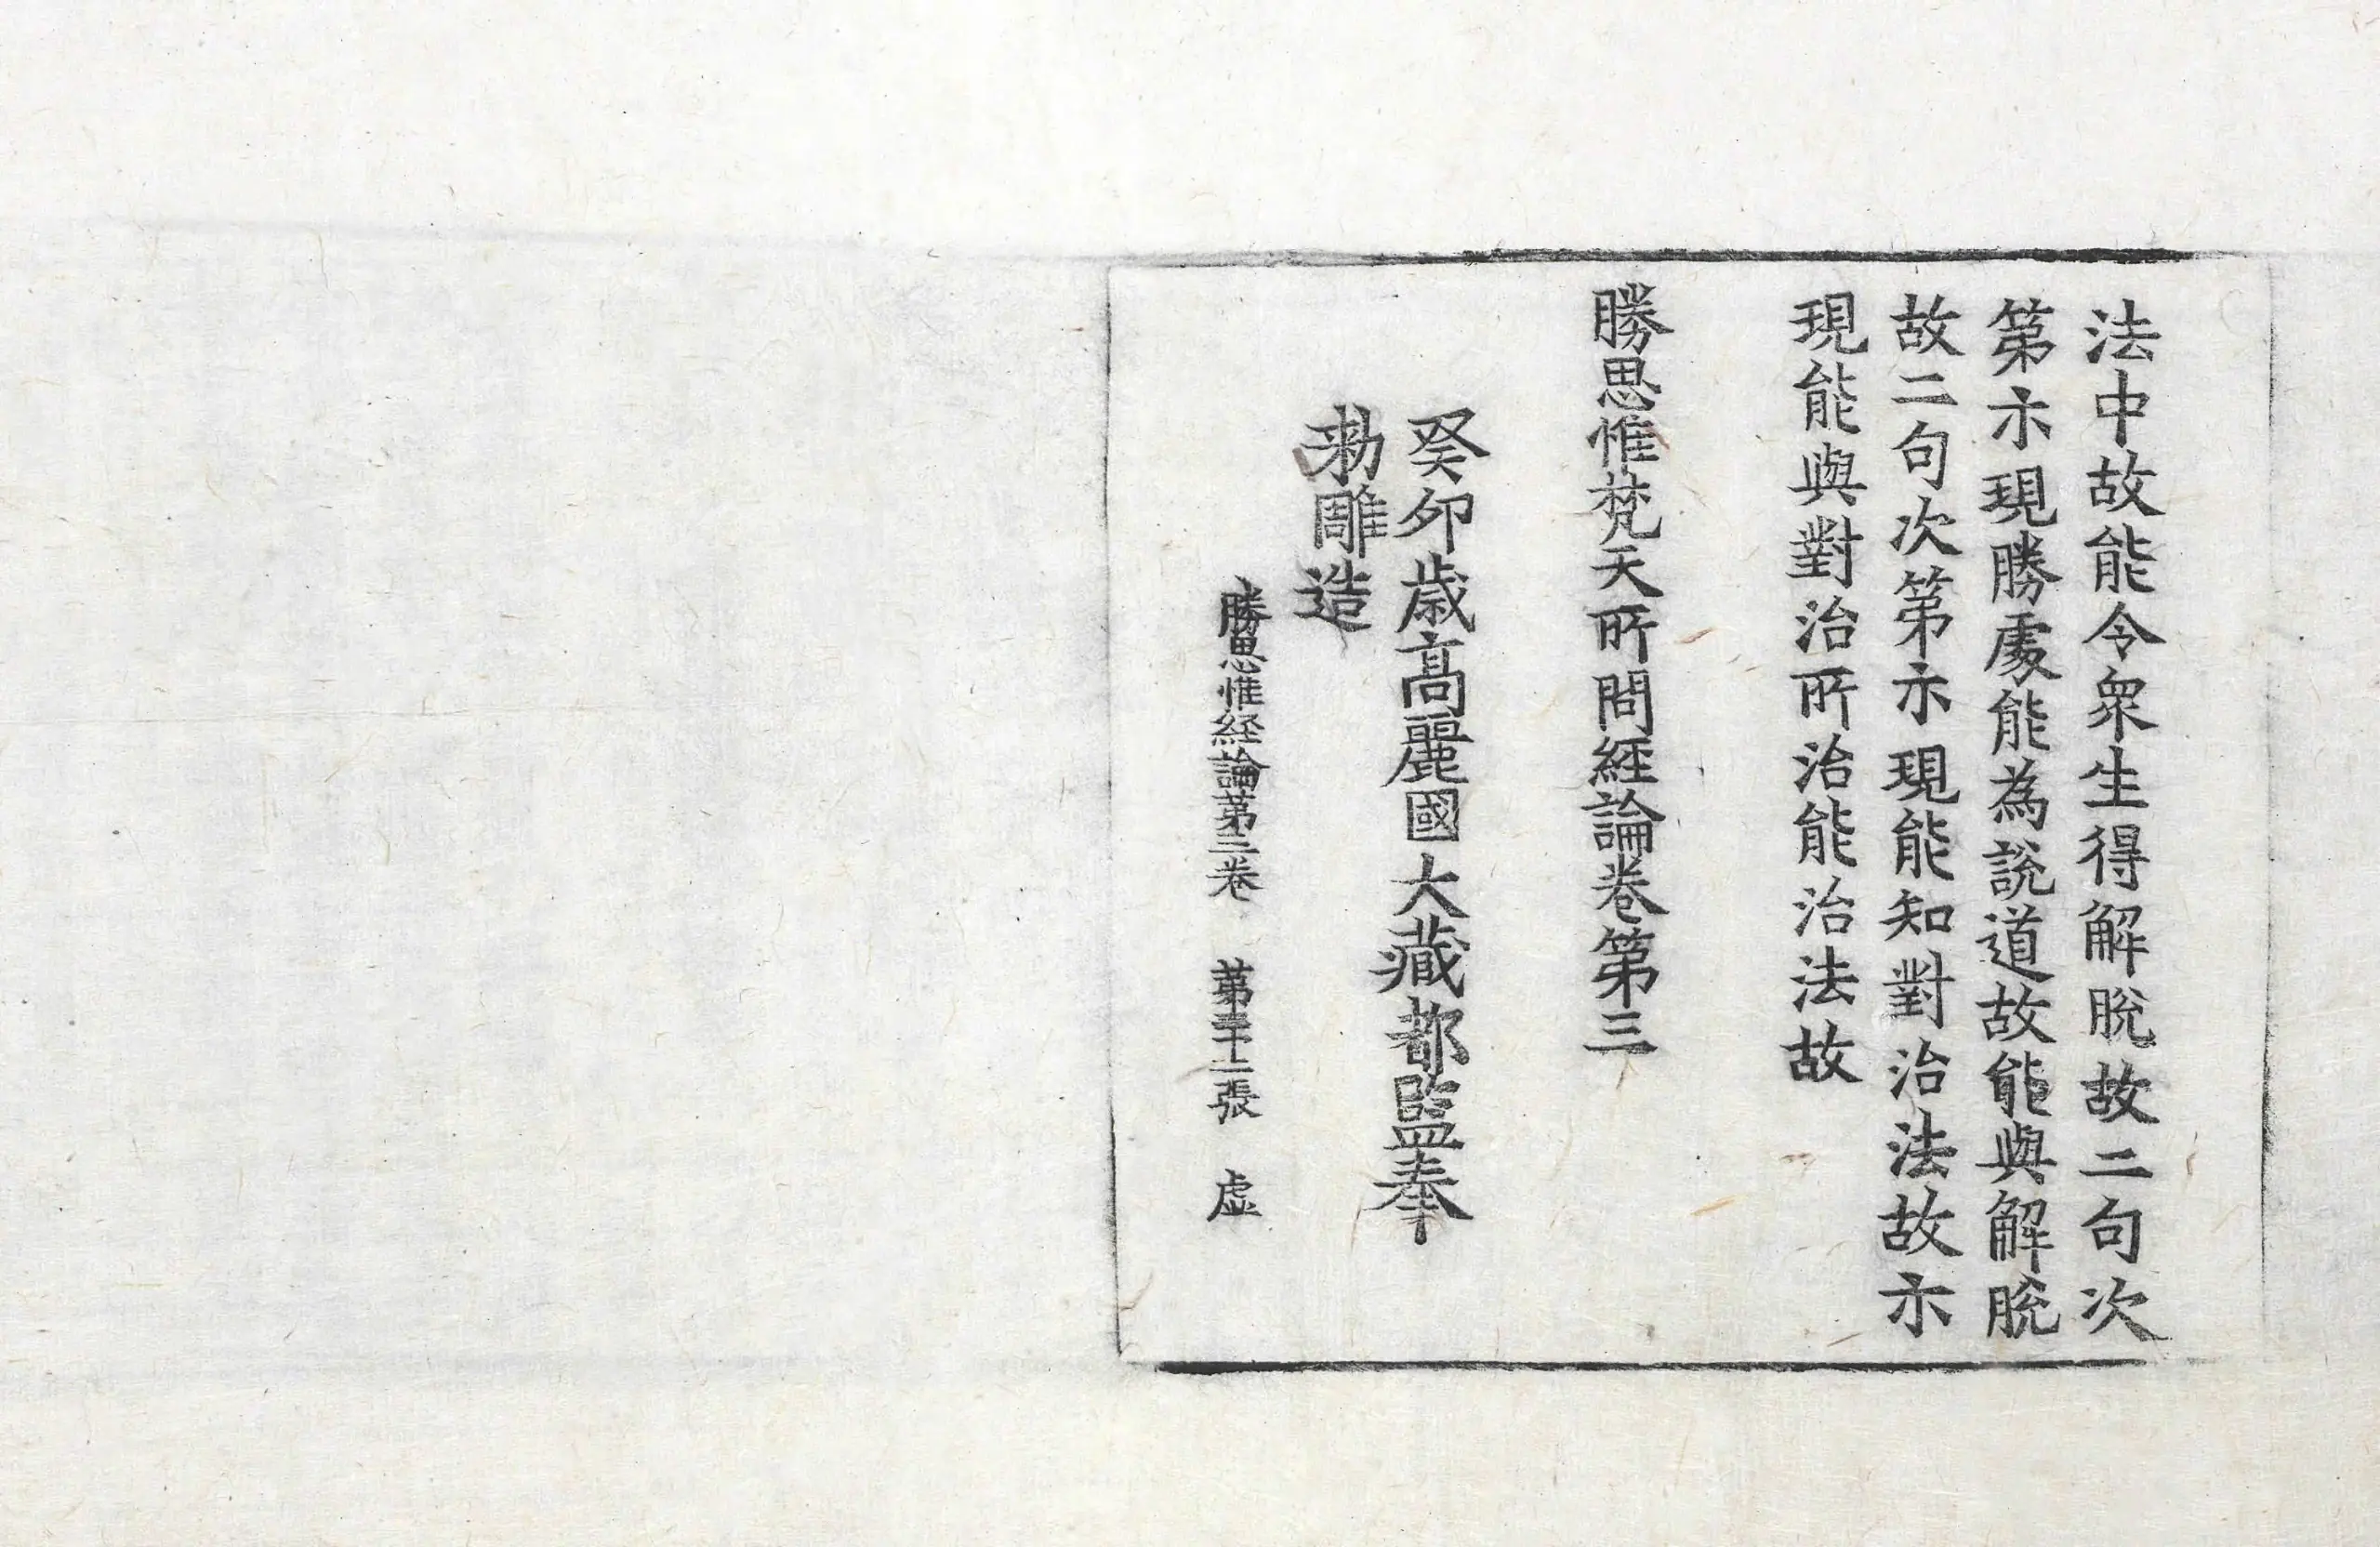 法中故能令衆生得解脫故二句次
第示現勝處能為說道故能與解脫
故二句次第示現能知對治法故示
現能與對治所治能治法故
勝思惟梵天所問經論卷第三
癸卯歲高麗國大藏都監奉
勅雕造
勝思惟經論第三卷 第二十二張 虛